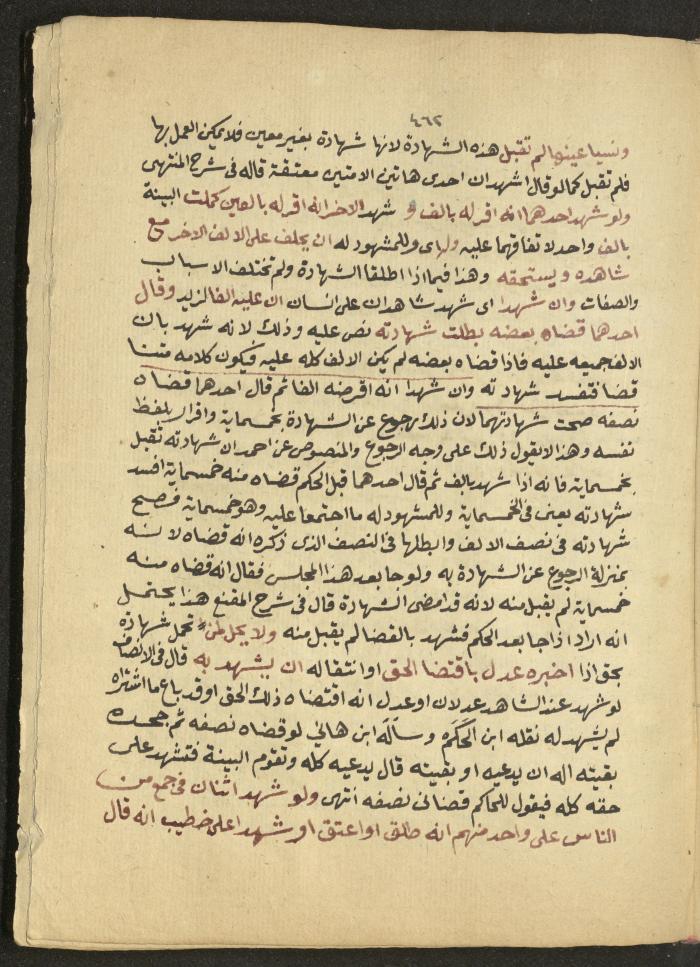 ٤٦٢
ونسيا عينها لم تقبل هذه الشهادة لانها شهادة بغير معين فلا يمكن العمل بها
فلم تقبل كما لو قال اشهد ان احدى هاتين الامتين معتقة قاله فى شرح المنتهى
ولو شهد احدهما انه اقر له بالف و شهد الاخر انه اقر له بالفين كملت البينة
بالف واحد لاتفاقهما عليه وله اى وللمشهود له ان يحلف على الالف الاخر مع
شاهده ويستحقه وهذا فيما اذا اطلقا الشهادة ولم تختلف الاسباب
والصفات وان شهدا اى شهد شاهدان على انسان ان عليه الفا لزيد وقال
احدهما قضاه بعضه بطلت شهادته نص عليه وذلك لانه شهد بان
الالف جميعه عليه فاذا قضاه بعضه لم يكن الالف كله عليه فيكون كلامه متنا
قضا فتفسد شهادته وان شهدا انه اقرضه الفا ثم قال احدهما قضاه
نصفه صحت شهادتهما لان ذلك رجوع عن الشهادة بخمسماية واقرار بلفظ
نفسه وهذا لا يقول ذلك على وجه الرجوع والمنصوص عن احمد ان شهادته تقبل
بخمسماية فانه اذا شهد بالف ثم قال احدهما قبل الحكم قضاه منه خمسماية افسد
شهادته يعنى فى الخمسماية وللمشهود له ما اجتمعا عليه وهو خمسماية فصحح
شهادته فى نصف الالف وابطلها فى النصف الذى ذكره انه قضاه لانه
بمنزلة الرجوع عن الشهادة به ولو جا بعد هذا المجلس فقال انه قضاه منه
خمسماية لم يقبل منه لانه قد امضى الشهادة قال فى شرح المقنع هذا يحتمل
انه اراد اذا جا بعد الحكم فشهد بالقضا لم يقبل منه ولا يحل لمن تحمل شهادة
بحق اذا اخبره عدل باقتضا الحق او انتقاله ان يشهد به قال فى الانصاف
لو شهد عند الشاهد عدلان او عدل انه اقتضاه ذلك الحق او قد باع ما اشتراه
لم يشهد له نقله ابن الحكم وساله ابن هانى لو قضاه نصفه ثم جحده
بقيته اله ان يدعيه او بقيته قال يدعيه كله وتقوم البينة فتشهد على
حقه كله فيقول للحاكم قضانى نصفه انتهى ولو شهد اثنان فى جمع من
الناس على واحد منهم انه طلق او اعتق او شهدا على خطيب انه قال